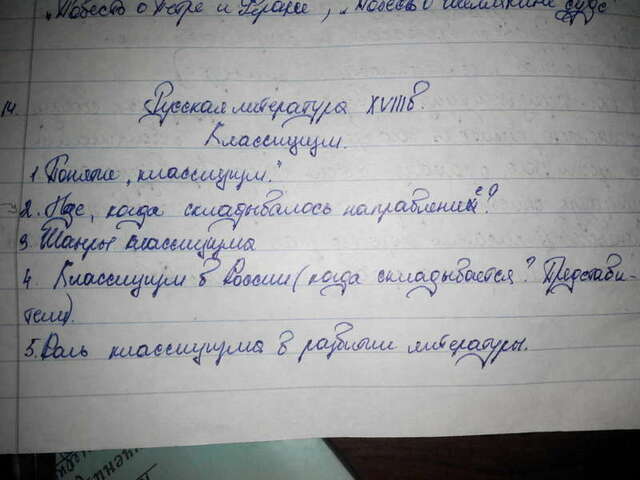 „Повесть о Петре и Февронии", „Повесть о Шемякином суде"
14.
Русская литература XVIIIв.
Классицизм.
1 Понятие „классицизм."
2. Где, когда складывалось направление?
3 Жанры классицизма
4. Классицизм в России (когда складывается? Представи-
тели).
5. Роль классицизма в развитии литературы.